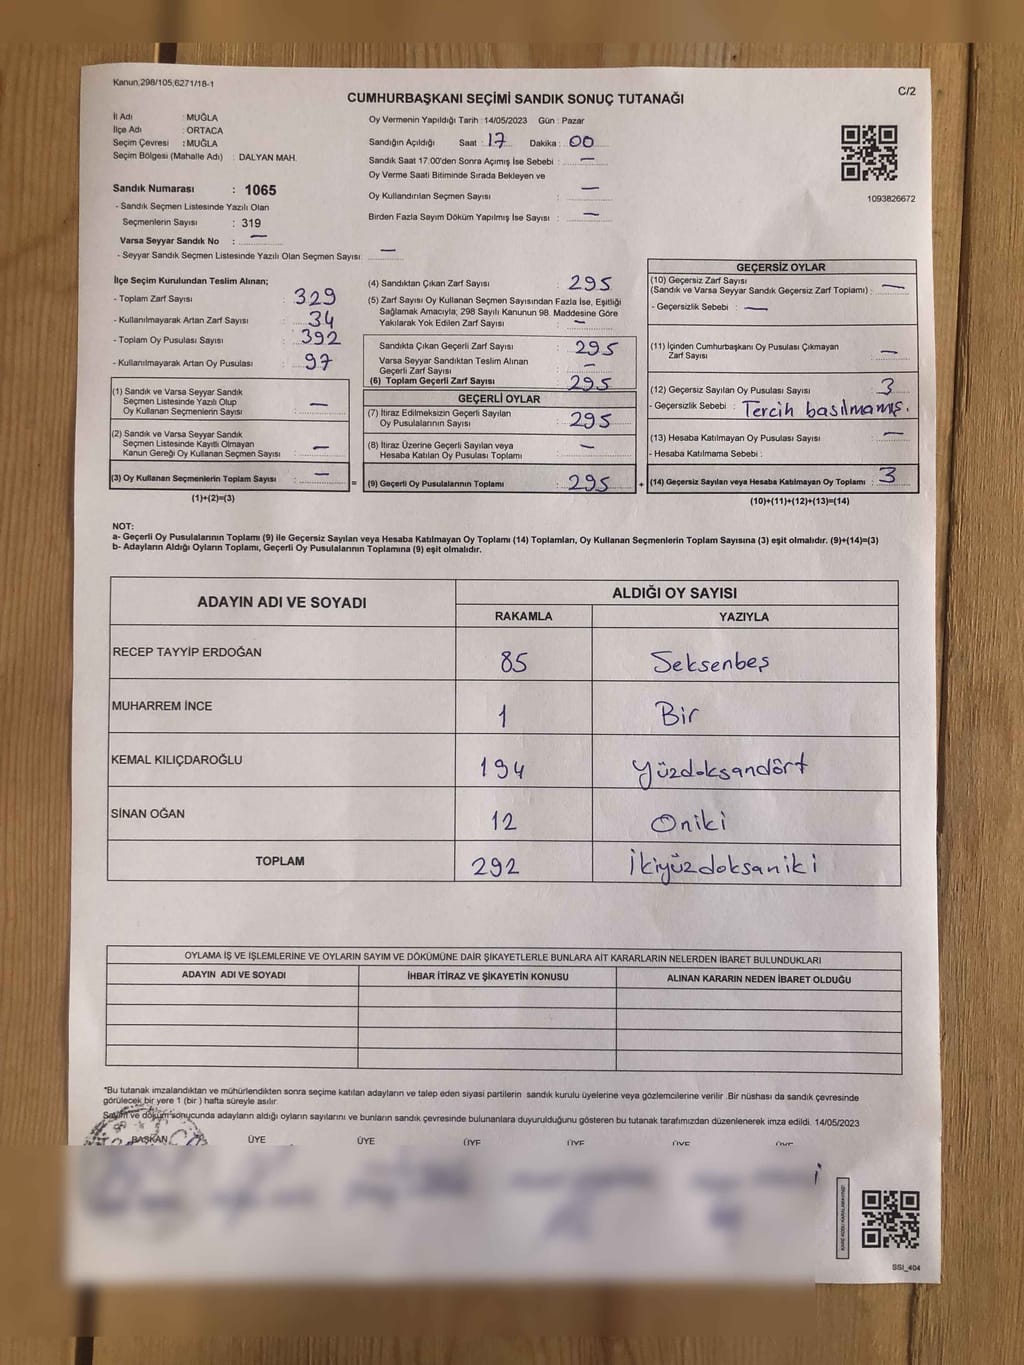 Kanun,298/105,6271/18-1
C/2
CUMHURBAŞKANI SEÇİMİ SANDIK SONUÇ TUTANAĞI
İl Adı : MUĞLA
İlçe Adı : ORTACA
Seçim Çevresi : MUĞLA
Seçim Bölgesi (Mahalle Adı) : DALYAN MAH.
Oy Vermenin Yapıldığı Tarih : 14/05/2023 Gün : Pazar
Sandığın Açıldığı Saat : 17 Dakika : 00
Sandık Saat 17:00'den Sonra Açımış İse Sebebi : —
Oy Verme Saati Bitiminde Sırada Bekleyen ve
Oy Kullandırılan Seçmen Sayısı : —
Birden Fazla Sayım Döküm Yapılmış İse Sayısı : —
1093826672
Sandık Numarası : 1065
- Sandık Seçmen Listesinde Yazılı Olan
Seçmenlerin Sayısı : 319
Varsa Seyyar Sandık No : —
- Seyyar Sandık Seçmen Listesinde Yazılı Olan Seçmen Sayısı: —
İlçe Seçim Kurulundan Teslim Alınan;
- Toplam Zarf Sayısı : 329
- Kullanılmayarak Artan Zarf Sayısı : 34
- Toplam Oy Pusulası Sayısı : 392
- Kullanılmayarak Artan Oy Pusulası : 97
(1) Sandık ve Varsa Seyyar Sandık
Seçmen Listesinde Yazılı Olup
Oy Kullanan Seçmenlerin Sayısı : —
(2) Sandık ve Varsa Seyyar Sandık
Seçmen Listesinde Kayıtlı Olmayan
Kanun Gereği Oy Kullanan Seçmen Sayısı : —
(3) Oy Kullanan Seçmenlerin Toplam Sayısı : — =
(1)+(2)=(3)
(4) Sandıktan Çıkan Zarf Sayısı : 295
(5) Zarf Sayısı Oy Kullanan Seçmen Sayısından Fazla İse, Eşitliği
Sağlamak Amacıyla; 298 Sayılı Kanunun 98. Maddesine Göre
Yakılarak Yok Edilen Zarf Sayısı : —
Sandıkta Çıkan Geçerli Zarf Sayısı : 295
Varsa Seyyar Sandıktan Teslim Alınan
Geçerli Zarf Sayısı : —
(6) Toplam Geçerli Zarf Sayısı : 295
GEÇERLİ OYLAR
(7) İtiraz Edilmeksizin Geçerli Sayılan
Oy Pusulalarının Sayısı : 295
(8) İtiraz Üzerine Geçerli Sayılan veya
Hesaba Katılan Oy Pusulası Toplamı : —
(9) Geçerli Oy Pusulalarının Toplamı : 295 +
GEÇERSİZ OYLAR
(10) Geçersiz Zarf Sayısı
(Sandık ve Varsa Seyyar Sandık Geçersiz Zarf Toplamı) : —
- Geçersizlik Sebebi : —
(11) İçinden Cumhurbaşkanı Oy Pusulası Çıkmayan
Zarf Sayısı : —
(12) Geçersiz Sayılan Oy Pusulası Sayısı : 3
- Geçersizlik Sebebi : Tercih basılmamış.
(13) Hesaba Katılmayan Oy Pusulası Sayısı : —
- Hesaba Katılmama Sebebi :
(14) Geçersiz Sayılan veya Hesaba Katılmayan Oy Toplamı : 3
(10)+(11)+(12)+(13)=(14)
NOT:
a- Geçerli Oy Pusulalarının Toplamı (9) ile Geçersiz Sayılan veya Hesaba Katılmayan Oy Toplamı (14) Toplamları, Oy Kullanan Seçmenlerin Toplam Sayısına (3) eşit olmalıdır. (9)+(14)=(3)
b- Adayların Aldığı Oyların Toplamı, Geçerli Oy Pusulalarının Toplamına (9) eşit olmalıdır.
ADAYIN ADI VE SOYADI
ALDIĞI OY SAYISI
RAKAMLA YAZIYLA
RECEP TAYYİP ERDOĞAN 85 Seksenbeş
MUHARREM İNCE 1 Bir
KEMAL KILIÇDAROĞLU 194 Yüzdoksandört
SİNAN OĞAN 12 Oniki
TOPLAM 292 İkiyüzdoksaniki
OYLAMA İŞ VE İŞLEMLERİNE VE OYLARIN SAYIM VE DÖKÜMÜNE DAİR ŞİKAYETLERLE BUNLARA AİT KARARLARIN NELERDEN İBARET BULUNDUKLARI
ADAYIN ADI VE SOYADI İHBAR İTİRAZ VE ŞİKAYETİN KONUSU ALINAN KARARIN NEDEN İBARET OLDUĞU
*Bu tutanak imzalandıktan ve mühürlendikten sonra seçime katılan adayların ve talep eden siyasi partilerin sandık kurulu üyelerine veya gözlemcilerine verilir .Bir nüshası da sandık çevresinde
görülecek bir yere 1 (bir ) hafta süreyle asılır.
Sayım ve döküm sonucunda adayların aldığı oyların sayılarını ve bunların sandık çevresinde bulunanlara duyurulduğunu gösteren bu tutanak tarafımızdan düzenlenerek imza edildi. 14/05/2023
BAŞKAN ÜYE ÜYE ÜYE ÜYE ÜYE ÜYE
SSI_404